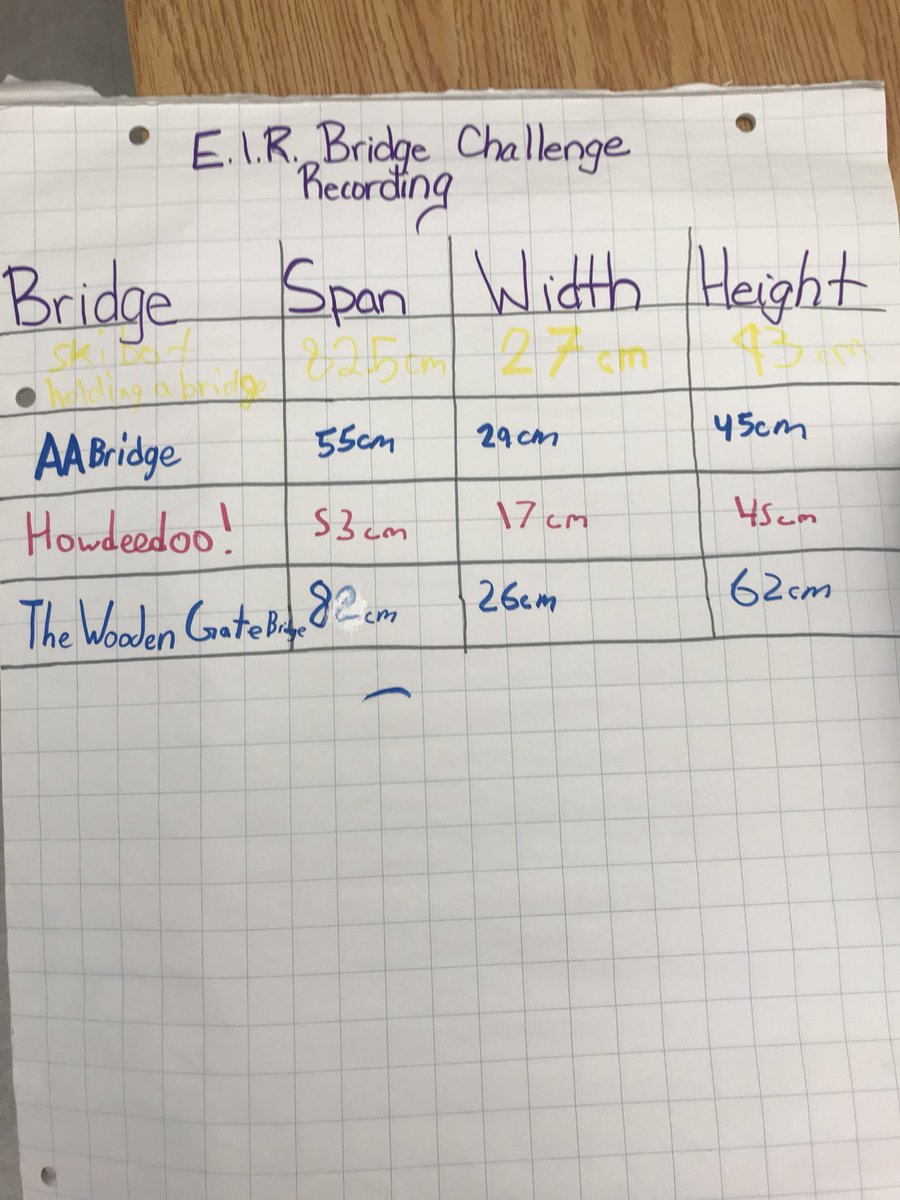 E.I.R. Bridge Challenge
Recording
Bridge Span Width Height
holding a bridge 825cm 27cm 43cm
AA Bridge 55cm 29cm 45cm
Howdeedoo! 53cm 17cm 45cm
The Wooden Gate Bridge 82cm 26cm 62cm